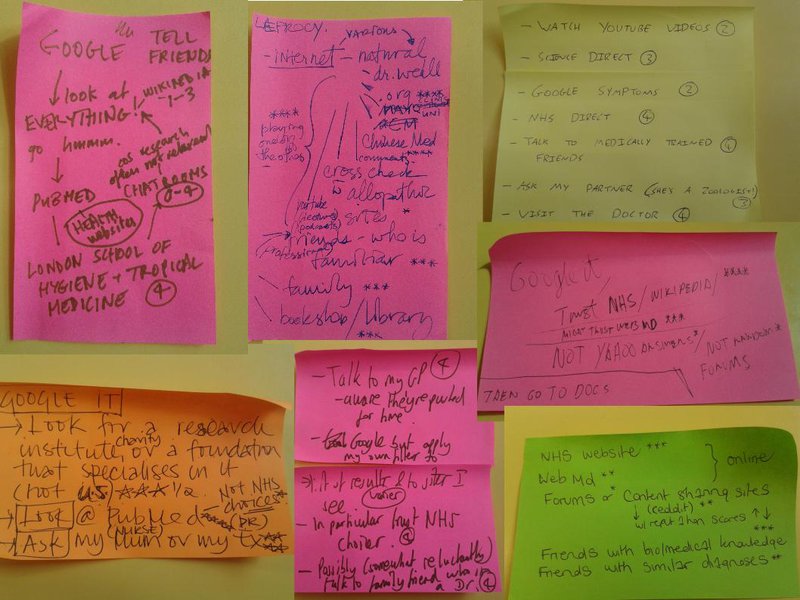 GOOGLE
TELL
FRIENDS
look at
EVERYTHING!
WIKIPEDIA
1-3
go hmmm.
as research
often not relevant
PUBMED
CHATROOMS
0-4
HEALTH
websites
LONDON SCHOOL OF
HYGIENE + TROPICAL
MEDICINE 4
LEPROCY.
various
- internet - natural
.org ****
MAYO
UNI
****
playing
one off
the other
Chinese Med
comments
cross check
to allopathic
sites *
youtube
podcasts
friends - who is
(professional) familiar ***
family ***
bookshop/library
***
- WATCH YOUTUBE VIDEOS 2
- SCIENCE DIRECT 3
- GOOGLE SYMPTOMS 2
- NHS DIRECT 4
- TALK TO MEDICALLY TRAINED 4
FRIENDS
- ASK MY PARTNER (SHE'S A ZOOLOGIST!) 3
- VISIT THE DOCTOR 4
Google it,
TRUST NHS/WIKIPEDIA/ ****
MIGHT TRUST WEBS MD ***
NOT YAHOO ANSWERS*/NOT RANDOM *
FORUMS
THEN GO TO DOCS
GOOGLE IT
→ Look for a research
institute, charity or a foundation
that specialises in it
(not US) ***½. Not NHS
choices.*
→ Look @ PubMed
→ Ask my Mum (NURSE) or my
- Talk to my GP 4
- aware they're pushed
for time
- Google but apply
my own filter to
A of results & to sites I
see (varies)
- In particular trust NHS
choices. 4
- Possibly (somewhat reluctantly)
talk to family friend who is
a Dr. 4
NHS website ***
Web Md **
online
Forums or Content sharing sites
(reddit) **
w/ relation scores ↑↓
***
Friends with biomedical knowledge
Friends with similar diagnoses **